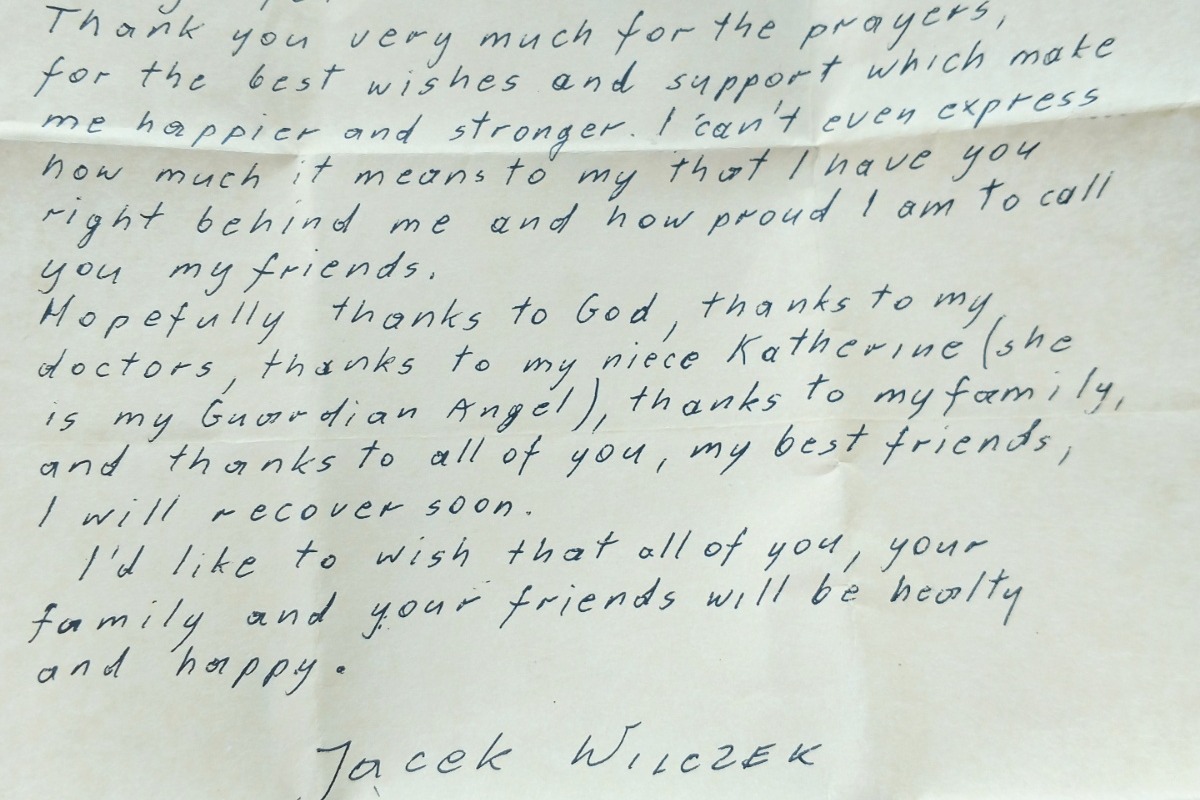 Thank you very much for the prayers,
for the best wishes and support which make
me happier and stronger. I can't even express
how much it means to my that I have you
right behind me and how proud I am to call
you my friends.
Hopefully thanks to God, thanks to my
doctors, thanks to my niece Katherine (she
is my Guardian Angel), thanks to my family,
and thanks to all of you, my best friends,
I will recover soon.
I'd like to wish that all of you, your
family and your friends will be healty
and happy.
Jacek WILCZEK